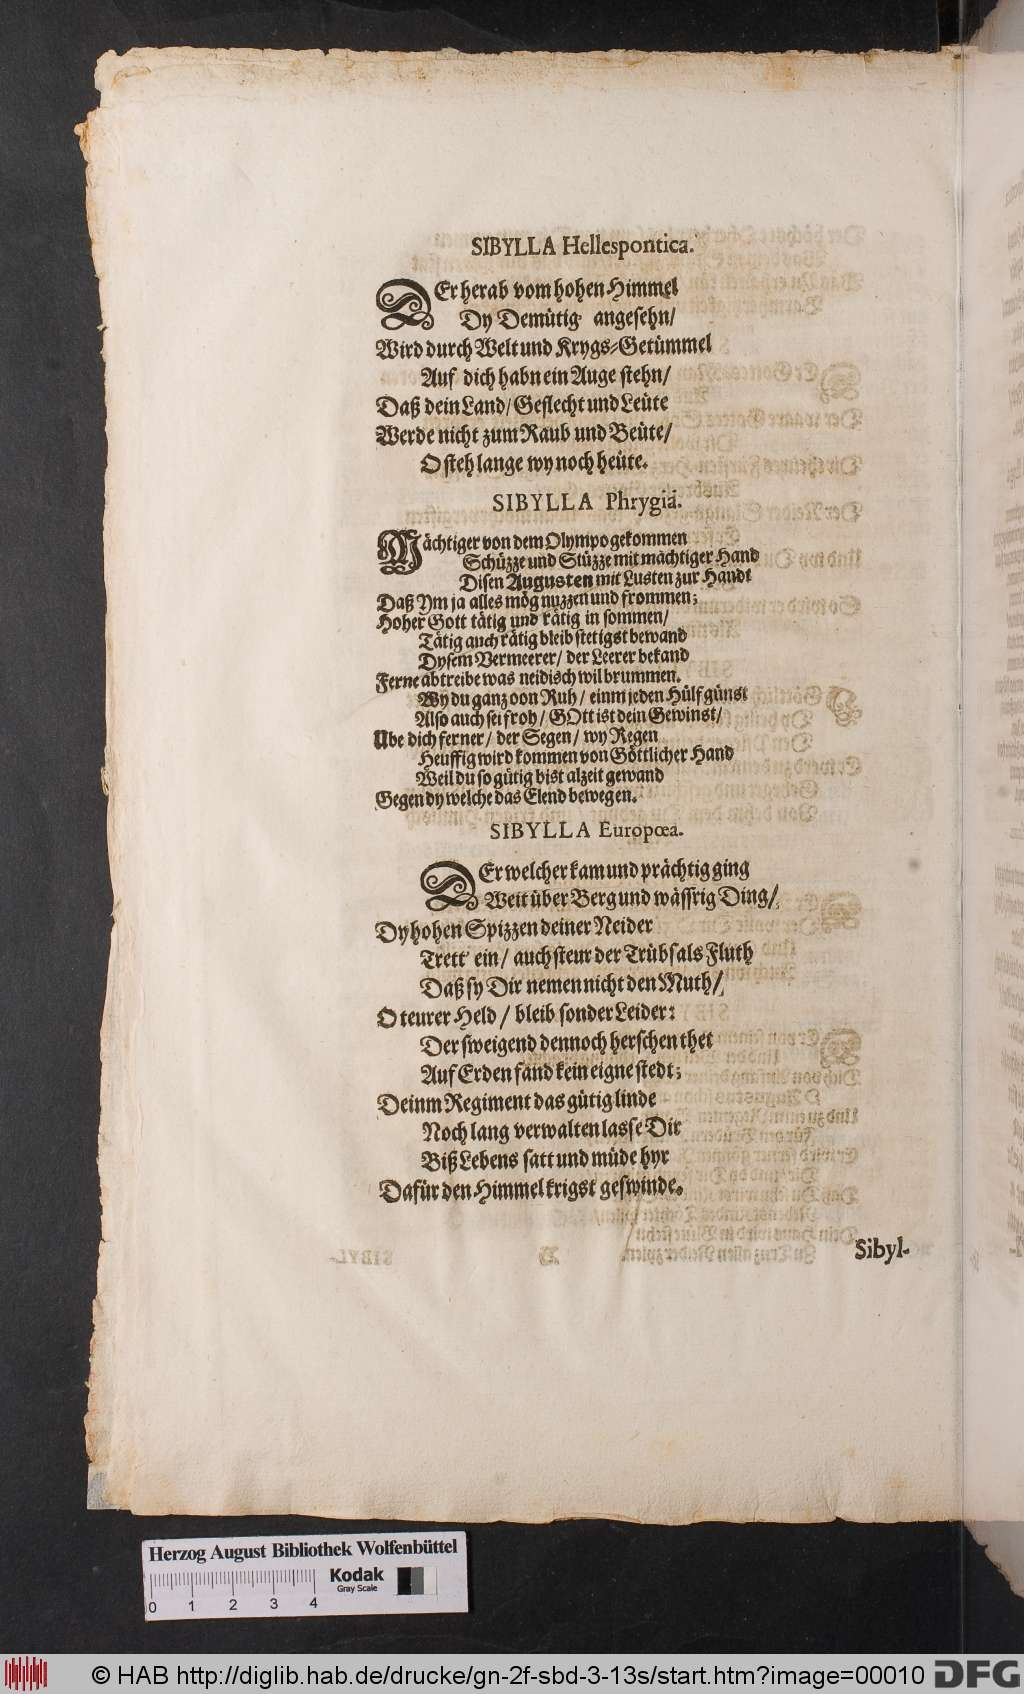 SIBYLLA Hellespontica.
DEr herab vom hohen Himmel
Dy Demütig angesehn/
Wird durch Welt und Krygs-Getümmel
Auf dich habn ein Auge stehn/
Daß dein Land/ Geslecht und Leüte
Werde nicht zum Raub und Beüte/
O steh lange wy noch heüte.
SIBYLLA Phrygiä.
Mächtiger von dem Olympo gekommen
Schüzze und Stüzze mit mächtiger Hand
Disen Augusten mit Lusten zur Handt
Daß Ym ja alles mög nuzzen und frommen;
Hoher Gott tätig und rätig in sommen/
Tätig auch rätig bleib stetigst bewand
Dysem Vermeerer/ der Leerer bekand
Ferne abtreibe was neidisch wil brummen.
Wy du ganz oon Ruh/ einm jeden Hülf günst
Also auch sei froh/ GOtt ist dein Gewinst/
Übe dich ferner/ der Segen/ wy Regen
Heuffig wird kommen von Göttlicher Hand
Weil du so gütig bist alzeit gewand
Gegen dy welche das Elend bewegen.
SIBYLLA Europœa.
DEr welcher kam und prächtig ging
Weit über Berg und wässrig Ding/
Dy hohen Spizzen deiner Neider
Trett' ein/ auch steur der Trübsals Fluth
Daß sy Dir nemen nicht den Muth/
O teurer Held/ bleib sonder Leider:
Der sweigend dennoch herschen thet
Auf Erden fand kein eigne stedt;
Deinm Regiment das gütig linde
Noch lang verwalten lasse Dir
Biß Lebens satt und müde hyr
Dafür den Himmel krigst geswinde.
Sibyl-
Herzog August Bibliothek Wolfenbüttel
Kodak
Gray Scale
0 1 2 3 4
© HAB http://diglib.hab.de/drucke/gn-2f-sbd-3-13s/start.htm?image=00010
DFG